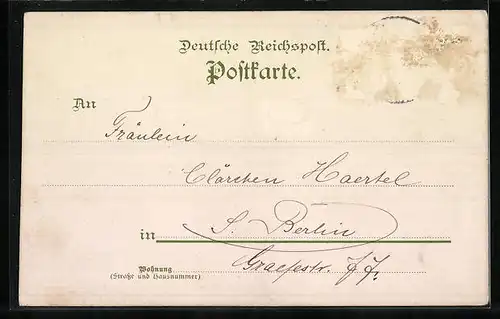 Deutsche Reichspost.
Postkarte.
An
Fräulein
Clärchen Haertel
in S. Berlin
Wohnung Graefestr. 77.
(Straße und Hausnummer)